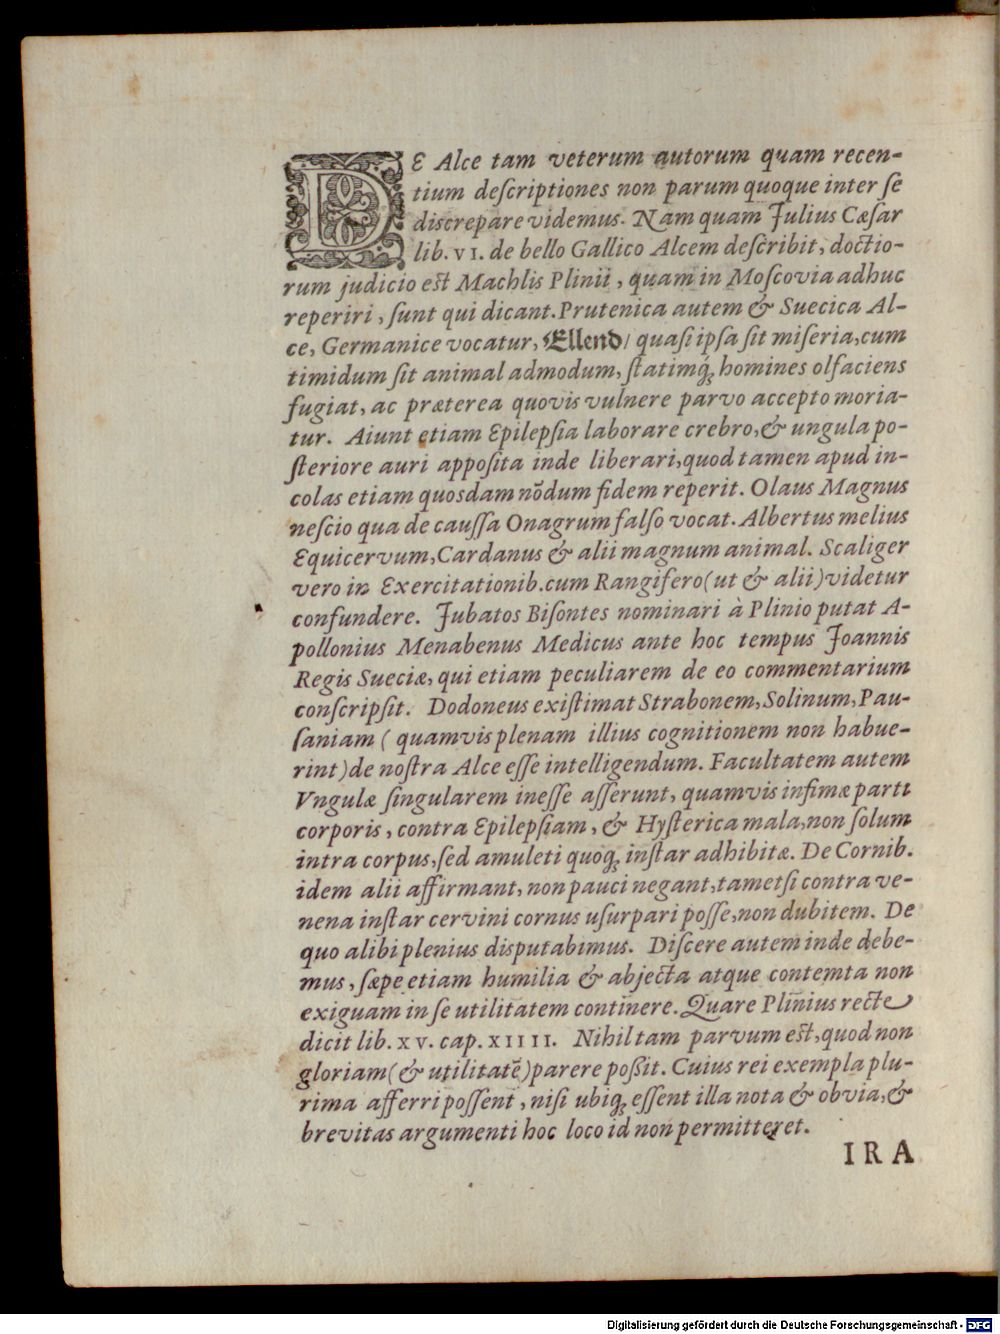 DE Alce tam veterum autorum quam recen-
tium deſcriptiones non parum quoque inter ſe
discrepare videmus. Nam quam Julius Cæſar
lib. VI. de bello Gallico Alcem deſcribit, doctio-
rum judicio est Machlis Plinii, quam in Moſcovia adhuc
reperiri, ſunt qui dicant. Prutenica autem & Suecica Al-
ce, Germanice vocatur, Ellend/ quaſi ipſa ſit miſeria, cum
timidum ſit animal admodum, ſtatimq́; homines olfaciens
fugiat, ac præterea quovis vulnere parvo accepto moria-
tur. Aiunt etiam Epilepſia laborare crebro, & ungula po-
ſteriore auri appoſita inde liberari, quod tamen apud in-
colas etiam quosdam nõdum fidem reperit. Olaus Magnus
neſcio qua de cauſſa Onagrum falſo vocat. Albertus melius
Equicervum, Cardanus & alii magnum animal. Scaliger
vero in Exercitationib. cum Rangifero (ut & alii) videtur
confundere. Jubatos Biſontes nominari à Plinio putat A-
pollonius Menabenus Medicus ante hoc tempus Joannis
Regis Sueciæ, qui etiam peculiarem de eo commentarium
conſcripſit. Dodoneus exiſtimat Strabonem, Solinum, Pau-
ſaniam (quamvis plenam illius cognitionem non habue-
rint) de noſtra Alce eſſe intelligendum. Facultatem autem
Vngulæ ſingularem ineſſe aſſerunt, quamvis infimæ parti
corporis, contra Epilepſiam, & Hyſterica mala, non ſolum
intra corpus, ſed amuleti quoq; inſtar adhibitæ. De Cornib.
idem alii affirmant, non pauci negant, tametſi contra ve-
nena inſtar cervini cornus uſurpari poſſe, non dubitem. De
quo alibi plenius disputabimus. Diſcere autem inde debe-
mus, ſæpe etiam humilia & abjecta atque contemta non
exiguam in ſe utilitatem continere. Quare Plinius recte
dicit lib. XV. cap. XIIII. Nihil tam parvum est, quod non
gloriam (& utilitatẽ) parere poßit. Cuius rei exempla plu-
rima afferri poſſent, niſi ubiq; eſſent illa nota & obvia, &
brevitas argumenti hoc loco id non permitteret.
IRA
Digitalisierung gefördert durch die Deutsche Forschungsgemeinschaft - DFG